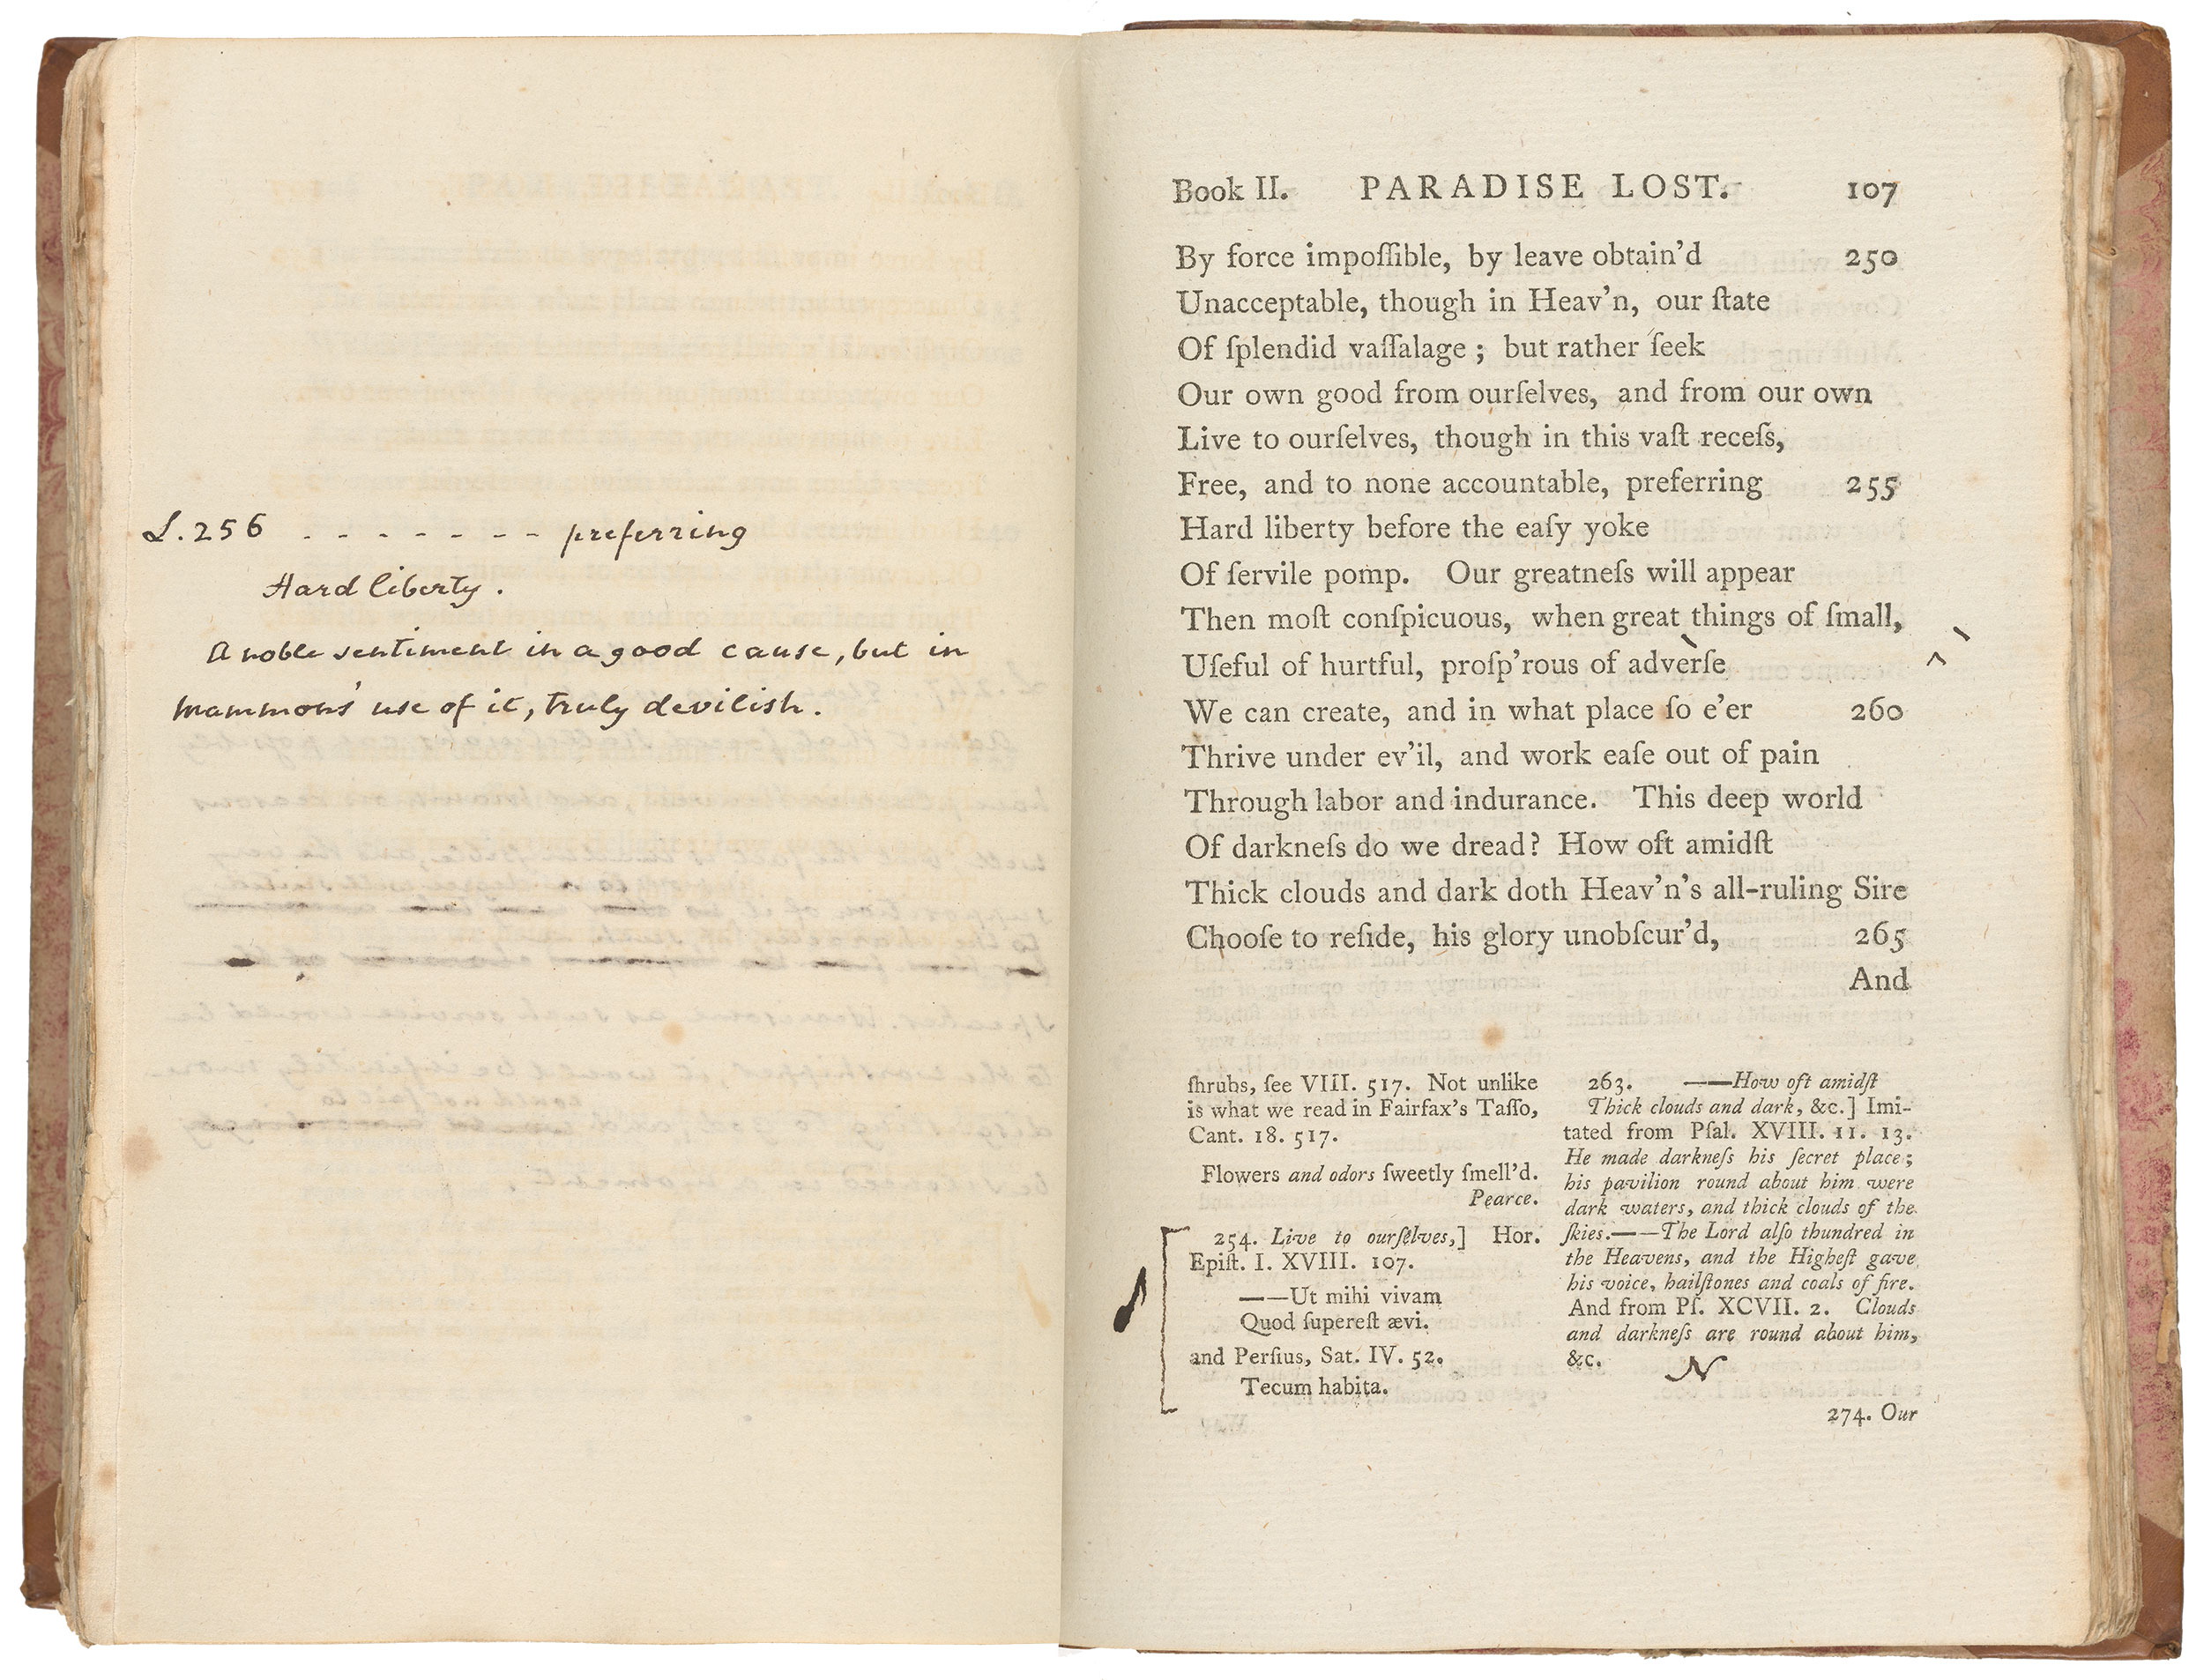 L. 256 - - - - - - - preferring
Hard liberty.
A noble sentiment in a good cause, but in
Mammons' use of it, truly devilish.
Book II. PARADISE LOST. 107
By force impoſſible, by leave obtain'd 250
Unacceptable, though in Heav'n, our ſtate
Of ſplendid vaſſalage; but rather ſeek
Our own good from ourſelves, and from our own
Live to ourſelves, though in this vaſt receſs,
Free, and to none accountable, preferring 255
Hard liberty before the eaſy yoke
Of ſervile pomp. Our greatneſs will appear
Then moſt conſpicuous, when great things of ſmall,
Uſeful of hurtful, proſp'rous of adverſe
We can create, and in what place ſo e'er 260
Thrive under ev'il, and work eaſe out of pain
Through labor and indurance. This deep world
Of darkneſs do we dread? How oft amidſt
Thick clouds and dark doth Heav'n's all-ruling Sire
Chooſe to reſide, his glory unobſcur'd, 265
And
ſhrubs, ſee VIII. 517. Not unlike
is what we read in Fairfax's Taſſo,
Cant. 18. 517.
Flowers and odors ſweetly ſmell'd.
Pearce.
254. Live to ourſelves,] Hor.
Epiſt. I. XVIII. 107.
——Ut mihi vivam
Quod ſupereſt ævi.
and Perſius, Sat. IV. 52.
Tecum habita.
263. ——How oft amidſt
Thick clouds and dark, &c.] Imi-
tated from Pſal. XVIII. 11. 13.
He made darkneſs his ſecret place;
his pavilion round about him were
dark waters, and thick clouds of the
ſkies.——The Lord alſo thundred in
the Heavens, and the Higheſt gave
his voice, hailſtones and coals of fire.
And from Pſ. XCVII. 2. Clouds
and darkneſs are round about him,
&c.
N
274. Our